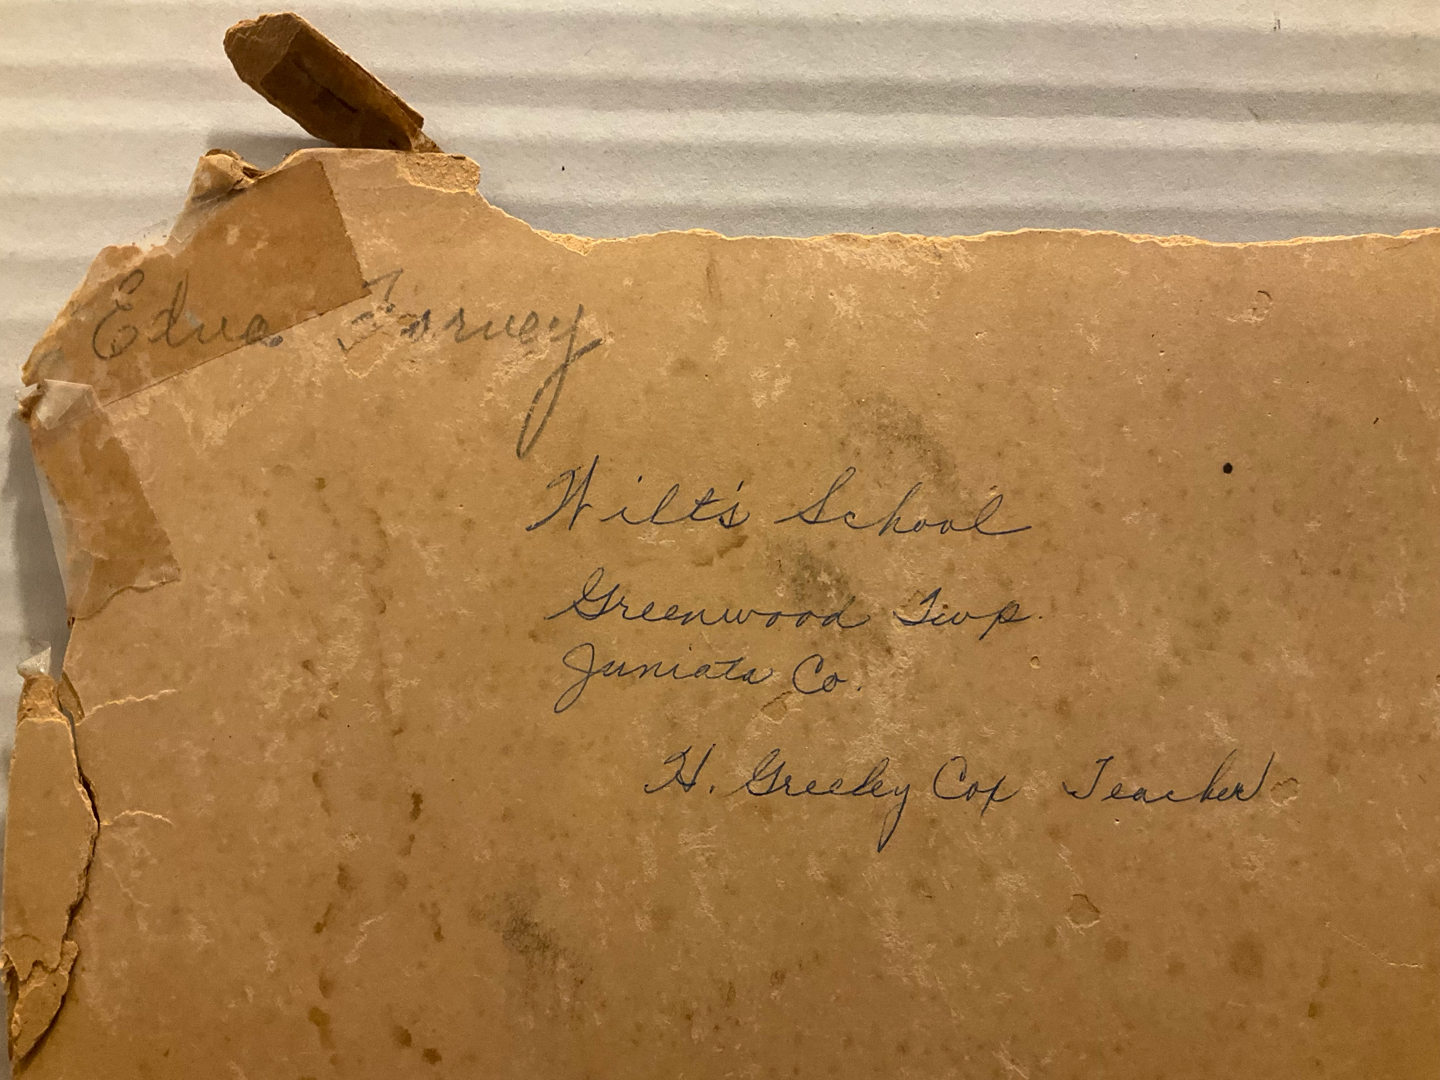 Edna Forney
Wilt's School
Greenwood Twp.
Juniata Co.
H. Greeley Cox Teacher